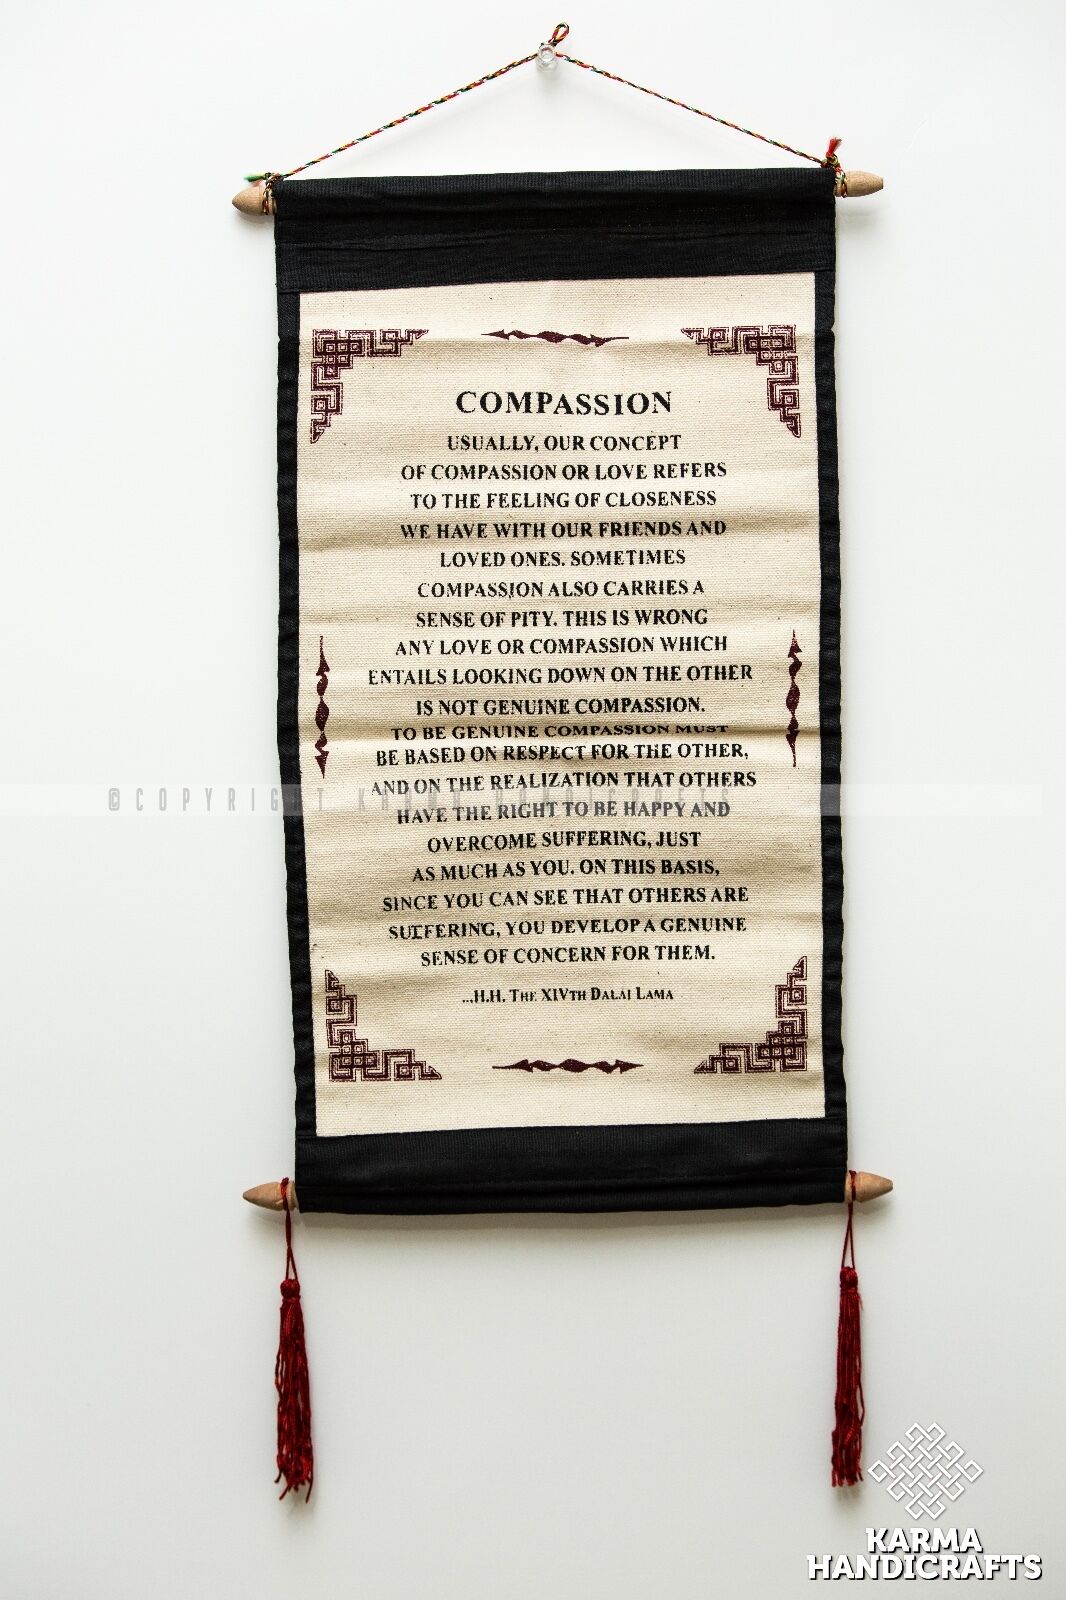 COMPASSION
USUALLY, OUR CONCEPT
OF COMPASSION OR LOVE REFERS
TO THE FEELING OF CLOSENESS
WE HAVE WITH OUR FRIENDS AND
LOVED ONES. SOMETIMES
COMPASSION ALSO CARRIES A
SENSE OF PITY. THIS IS WRONG
ANY LOVE OR COMPASSION WHICH
ENTAILS LOOKING DOWN ON THE OTHER
IS NOT GENUINE COMPASSION.
TO BE GENUINE COMPASSION MUST
BE BASED ON RESPECT FOR THE OTHER,
AND ON THE REALIZATION THAT OTHERS
©COPYRIGHT KARMA HANDICRAFTS
HAVE THE RIGHT TO BE HAPPY AND
OVERCOME SUFFERING, JUST
AS MUCH AS YOU. ON THIS BASIS,
SINCE YOU CAN SEE THAT OTHERS ARE
SUFFERING, YOU DEVELOP A GENUINE
SENSE OF CONCERN FOR THEM.
...H.H. THE XIVTH DALAI LAMA
KARMA
HANDICRAFTS